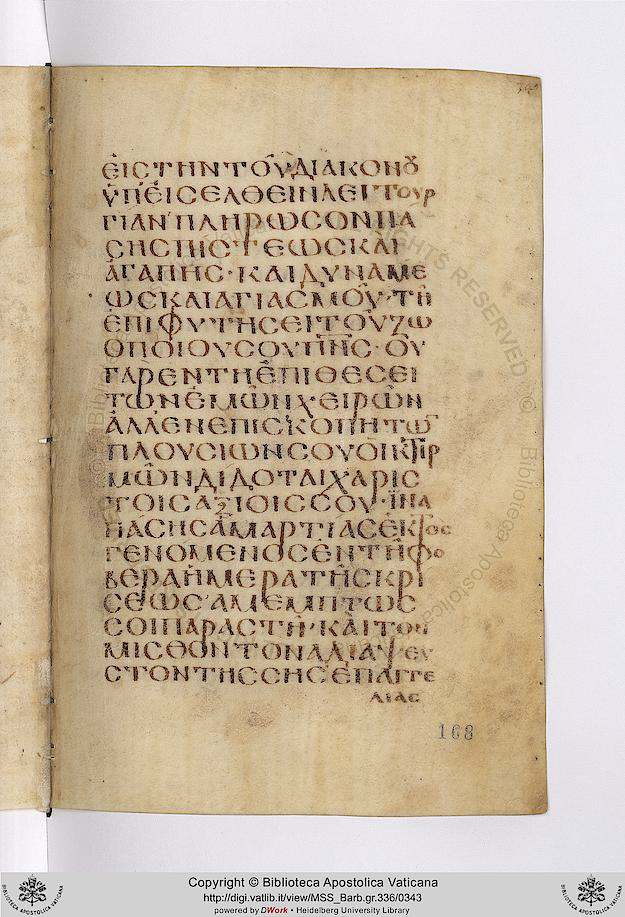 ΕΙΣ ΤΗΝ ΤΟΥ ΔΙΑΚΟΝȣ
ΥΠΕΙΣΕΛΘΕΙΝ ΛΕΙΤΟΥΡ
ΓΙΑΝ ΠΛΗΡΩΣΟΝ ΠΑ
ΣΗΣ ΠΙΣΤΕΩΣ ΚΑΙ
ΑΓΑΠΗΣ· ΚΑΙ ΔΥΝΑΜΕ
ΩΣ ΚΑΙ ΑΓΙΑΣΜΟΥ· ΤΗ
ΕΠΙΦΥΤΗΣΕΙ ΤΟΥ ΖΩ
ΟΠΟΙΟΥ ΣΟΥ ΠΝΣ· ΟΥ
ΓΑΡ ΕΝ ΤΗ ΕΠΙΘΕΣΕΙ
ΤΩΝ ΕΜΩΝ ΧΕΙΡΩΝ
ΑΛΛ ΕΝ ΕΠΙΣΚΟΠΗ ΤΩ
ΠΛΟΥΣΙΩΝ ΣΟΥ ΟΙΚΤΙΡ
ΜΩΝ ΔΙΔΟΤΑΙ ΧΑΡΙΣ
ΤΟΙΣ ΑΞΙΟΙΣ ΣΟΥ· ΙΝΑ
ΠΑΣΗΣ ΑΜΑΡΤΙΑΣ ΕΚΤΟΣ
ΓΕΝΟΜΕΝΟΣ ΕΝ ΤΗ ΦΟ
ΒΕΡΑ ΗΜΕΡΑ ΤΗΣ ΚΡΙ
ΣΕΩΣ ΑΜΕΜΠΤΩΣ
ΣΟΙ ΠΑΡΑΣΤΗ· ΚΑΙ ΤΟΝ
ΜΙΣΘΟΝ ΤΟΝ ΑΔΙΑΨΕΥ
ΣΤΟΝ ΤΗΣ ΣΗΣ ΕΠΑΓΓΕ
ΛΙΑΣ
168
Copyright © Biblioteca Apostolica Vaticana
http://digi.vatlib.it/view/MSS_Barb.gr.336/0343
powered by DWork • Heidelberg University Library